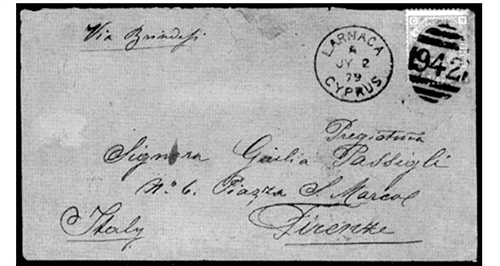 Via Brindisi
LARNACA
A
JY 2
79
CYPRUS
942
Pregiatma
Signora Giulia Passegli
No. 6. Piazza S. Marco
Italy
Firenze